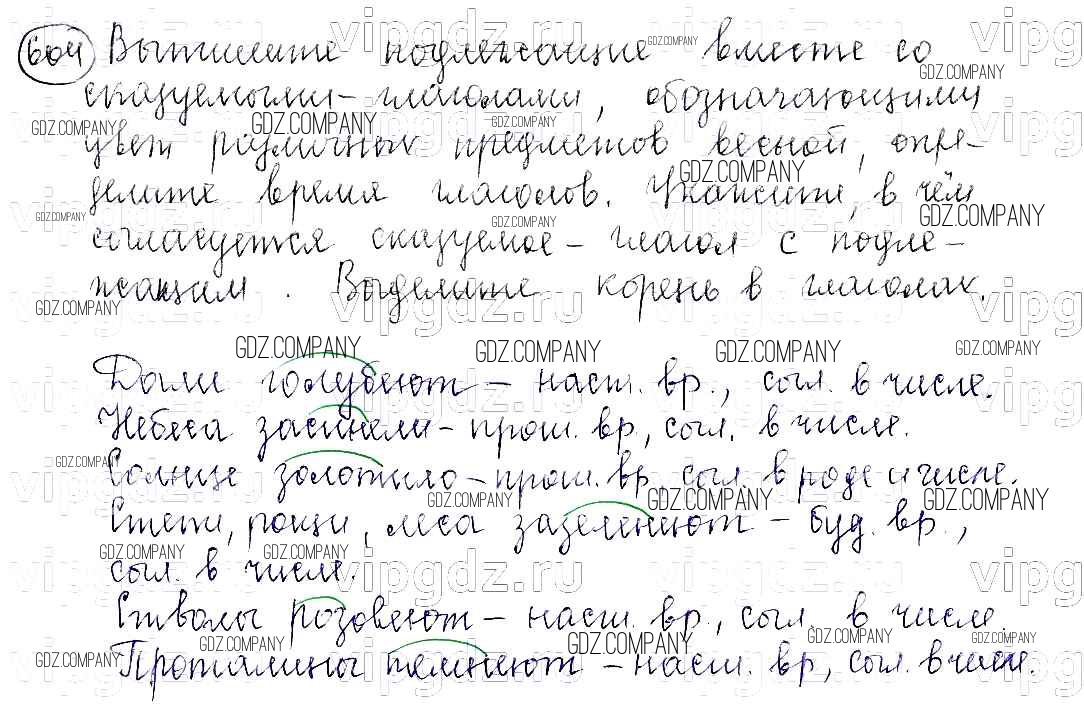 604 Выпишите подлежащие вместе со
сказуемыми-глаголами, обозначающими
цвет различных предметов весной, опре-
делите время глаголов. Укажите, в чём
согласуется сказуемое-глагол с подле-
жащим. Выделите корень в глаголах.
Дали голубеют – наст. вр., согл. в числе.
Небеса засинели – прош. вр, согл. в числе.
Солнце золотило – прош. вр, согл. в роде и числе.
Степи, рощи, леса зазеленеют – буд. вр.,
согл. в числе.
Стволы розовеют – наст. вр., согл. в числе.
Проталины темнеют – наст. вр, согл. в числе.
vipgdz.ru
GDZ.COMPANY